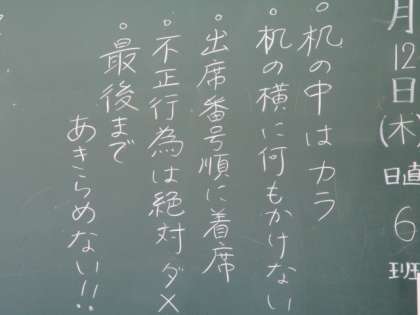 月12日(木)
日直 6班
・机の中はカラ
・机の横に何もかけない
・出席番号順に着席
・不正行為は絶対ダメ
・最後まで
あきらめない!!